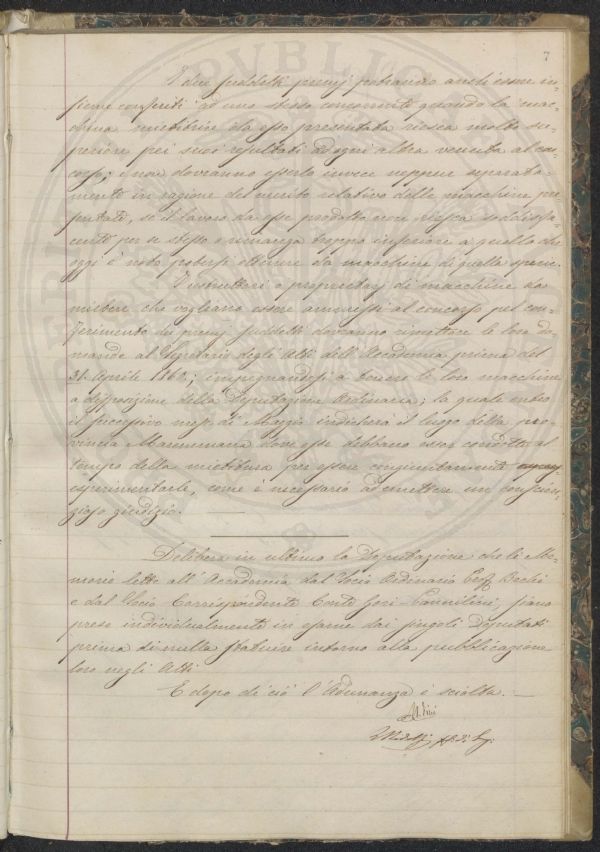 7
I due suddetti premj potranno anch'essere in-
sieme conferiti ad uno stesso concorrente quando la mac-
china mietitrice da esso presentata riesca molto su-
periore pei suoi resultati ad ogni altra venuta al con-
corso; e non dovranno esserlo invece neppure separata-
mente in ragione del merito relativo delle macchine pre-
sentate, se il lavoro da esse prodotto non riesca soddisfa-
cente per se stesso e rimanga troppo inferiore a quello che
oggi è noto potersi ottenere da macchine di quella specie.
I costruttori o proprietarj di macchine da
mietere che vogliano essere ammessi al concorso pel con-
ferimento dei premj suddetti dovranno rimettere le loro do-
mande al Segretario degli Atti dell'Accademia prima del
31 Aprile; impegnandosi a tenere le loro macchine
a disposizione della Deputazione Ordinaria; la quale entro
il successivo mese di Maggio indicherà il luogo della pro-
vincia Maremmana dove esse debbano esser condotte al
tempo della mietitura per essere congiuntamente
esperimentate, come è necessario ad emettere un coscien-
zioso giudizio.
Delibera in ultimo la Deputazione che le Me-
morie lette all'Accademia dal Socio Ordinario Bechi
e dal Socio Corrispondente Conte Gori-Pannilini, siano
prese individualmente in esame dai singoli Deputati
prima di nulla statuire intorno alla pubblicazione
loro negli Atti.
E dopo di ciò l'Adunanza è sciolta.